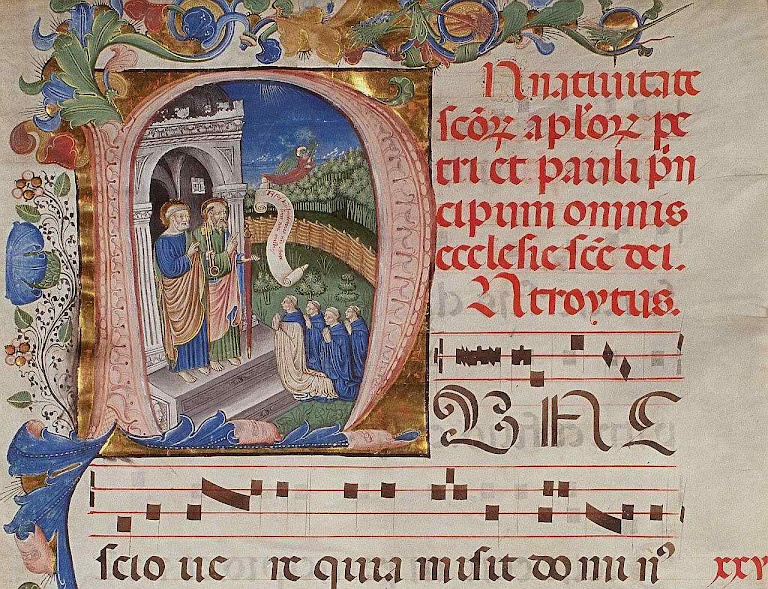 In natiuitate
scōꝝ aplōꝝ pe
tri et pauli pn̄
cipum omnis
ecclesie scē dei.
Introytus.
NUNC
scio ue re quia misit do mi nꝰ xxv